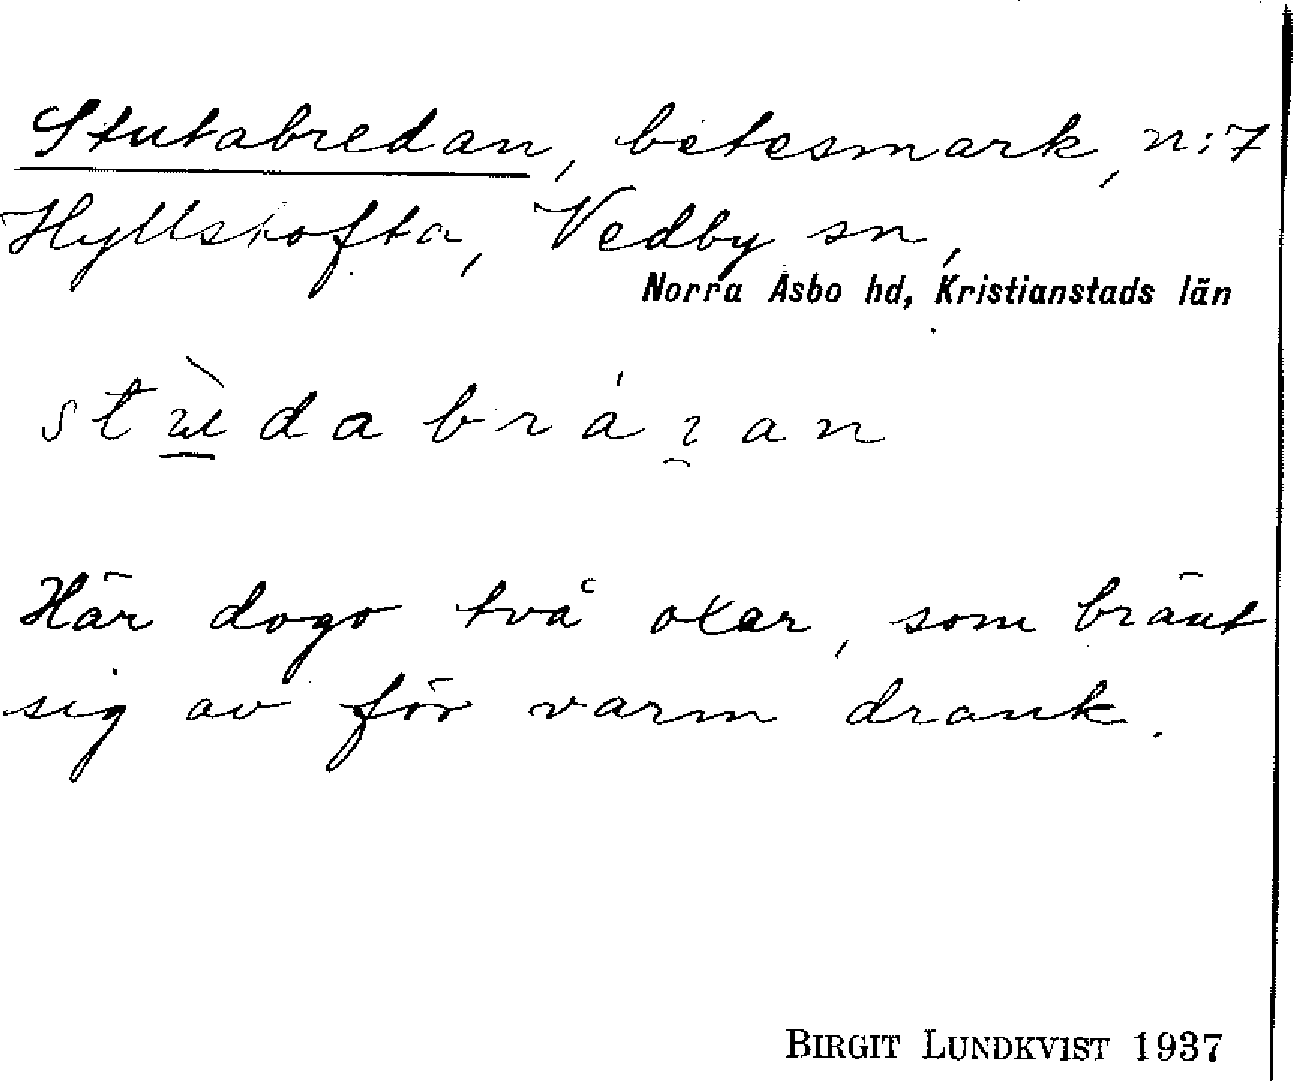 Stutabredan, betesmark, n:7
Hyllstofta, Vedby sn,
Norra Åsbo hd, Kristianstads län
Här dogo två oxar, som bränt
sig av för varm drank.
BIRGIT LUNDKVIST 1937